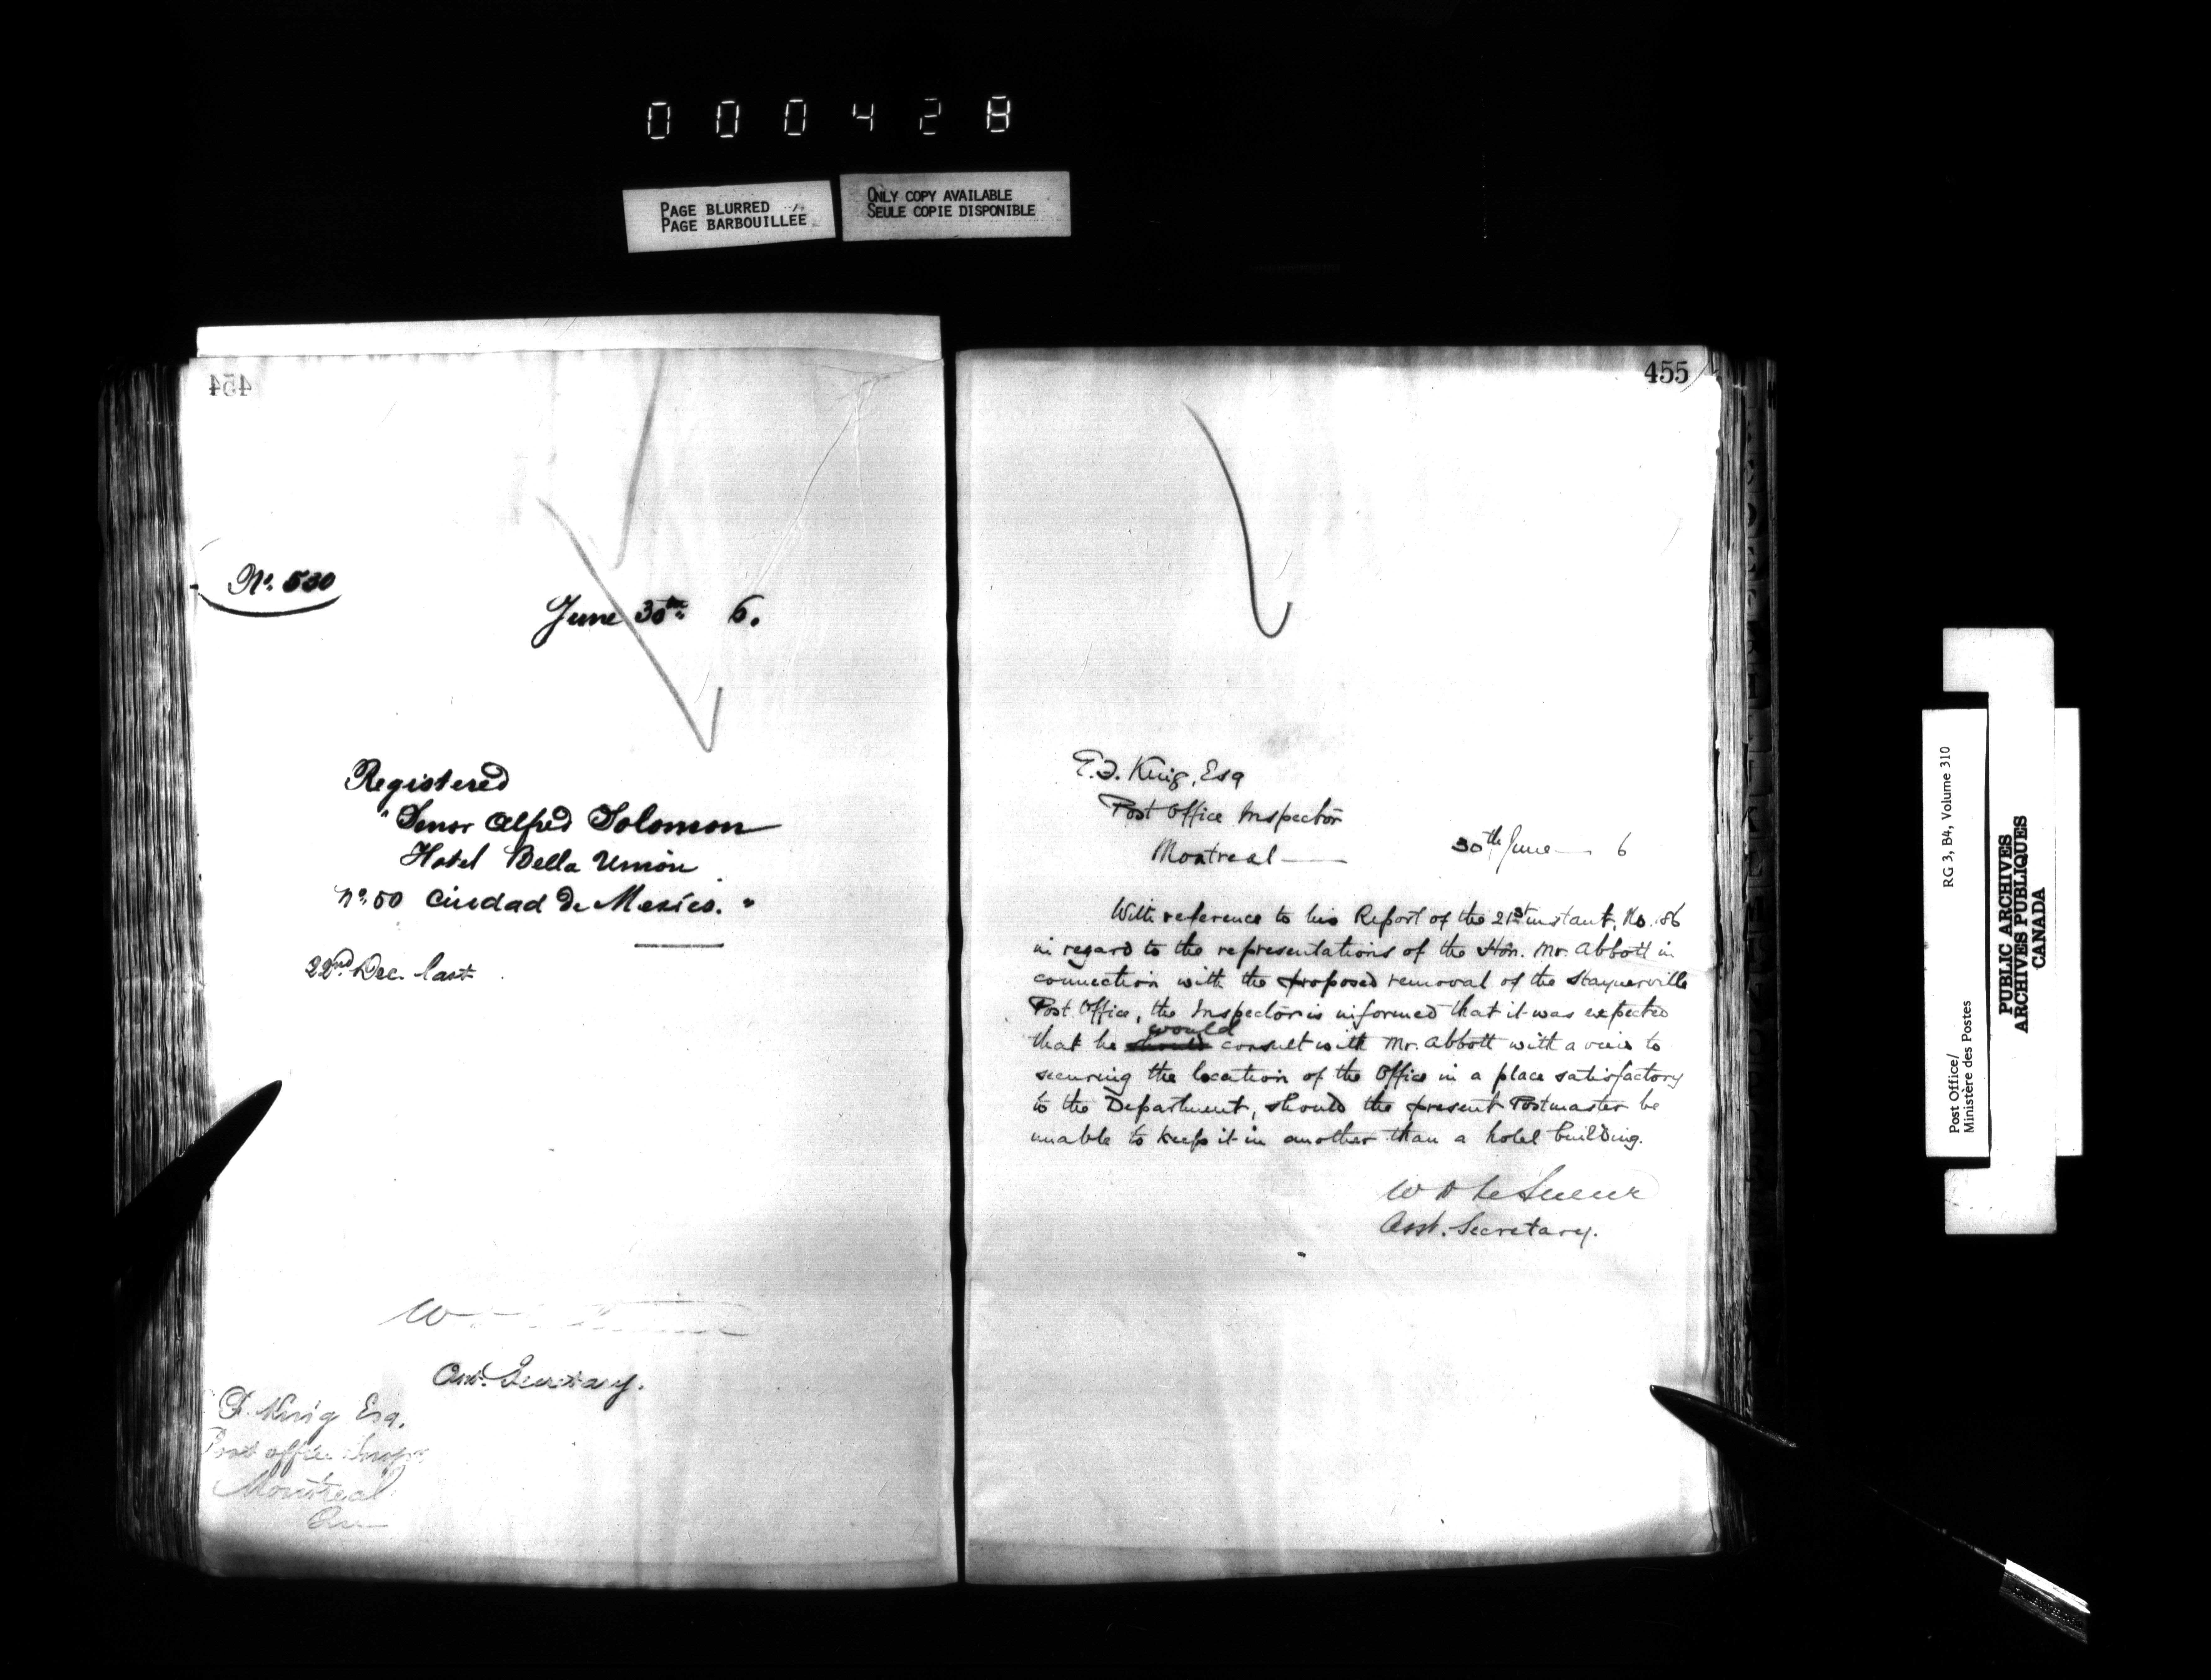 000428
PAGE BLURRED
PAGE BARBOUILLEE
ONLY COPY AVAILABLE
SEULE COPIE DISPONIBLE
454
No. 530
June 30th 6.
Registered
"Senor Alfred Solomon
Hotel Bella Union
No. 50 Ciudad de Mexico."
22nd Dec. last
W
Asst. Secretary.
King Esq.
Post office Inspr
Montreal
455
King, Esq
Post Office Inspector
Montreal
30th June 6
With reference to his Report of the 21st instant, No. 86
in regard to the representations of the Hon. Mr. Abbott in
connection with the proposed removal of the Staynerville
Post Office, the Inspector is informed that it was expected
that he should would consult with Mr. Abbott with a view to
securing the location of the Office in a place satisfactory
to the Department, should the present Postmaster be
unable to keep it in another than a hotel building.
W D LeSueur
Asst. Secretary.
RG 3, B4, Volume 310
Post Office/
Ministère des Postes
PUBLIC ARCHIVES
ARCHIVES PUBLIQUES
CANADA